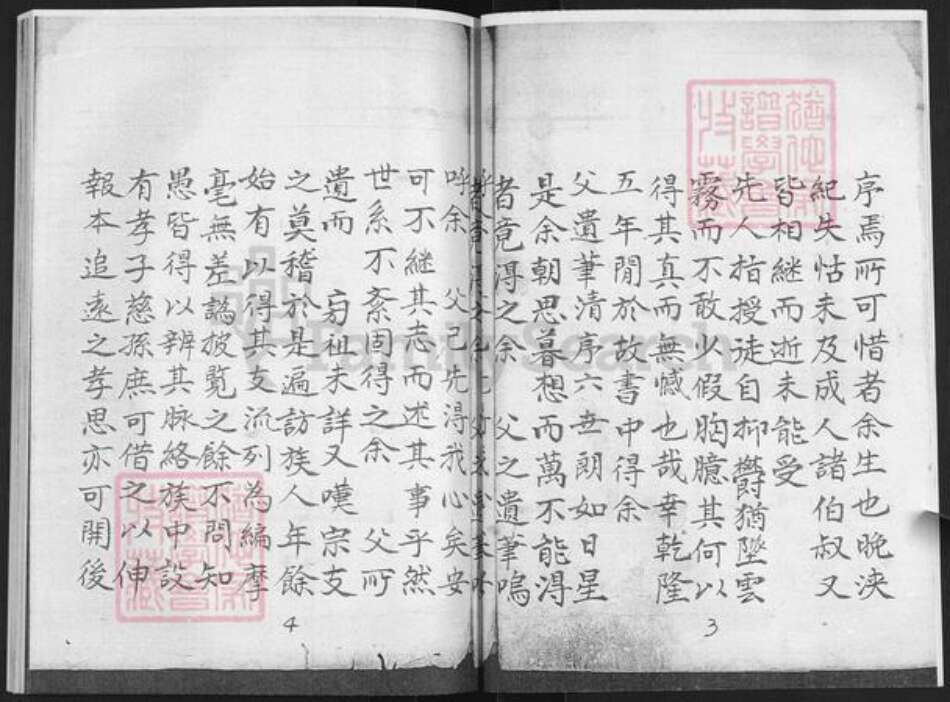 序焉所可惜者余生也晚浹
紀失怙未及成人諸伯叔又
皆相継而逝未能受
先人指授徒自抑欝猶墜雲
霧而不敢以假胸臆其何以
得其真而無憾也哉幸乾隆
五年間於故書中得余
父遺筆清序六世朗如日星
是余朝思暮想而萬不能淂
者竟淂之余 父之遺筆嗚
呼余 父己先淂我心矣安
可不継其志而述其事乎然
世系不紊固得之余 父所
遺而 祖未詳又嘆宗支
之莫稽於是遍訪族人年餘
始有以得其支流列為編摩
毫無差譌披覧之餘不問知
愚皆得以辨其脉絡族中設
有孝子慈孫庶可借之以伸
報本追遠之孝思亦可開後
3
4
FamilySearch